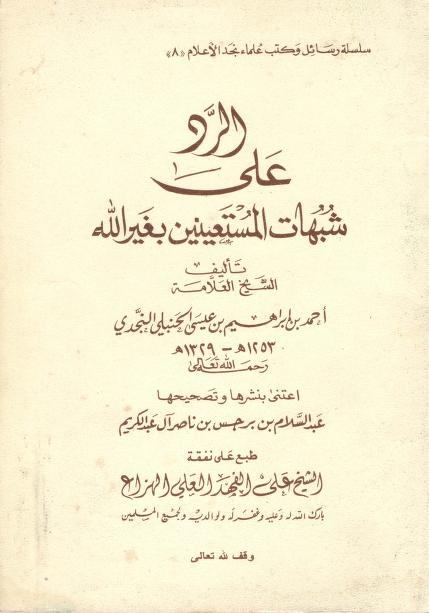 سلسلة رسائل وكتب علماء نجد الأعلام «٨»
الرَّد
على
شُبُهات المُستَعينين بغير الله
تأليف
الشيخ العلّامة
أحمد بن إبراهيم بن عيسى الحنبلي النَّجدي
١٢٥٣هـ - ١٣٢٩هـ
رحمه الله تعالى
اعتنى بنشرها وتصحيحها
عبد السلام بن برجس بن ناصر آل عبد الكريم
طبع على نفقة
الشيخ علي الفهد العلي الهزاع
بارك الله له وعليه وغفر له ولوالديه ولجميع المسلمين
وقف لله تعالى